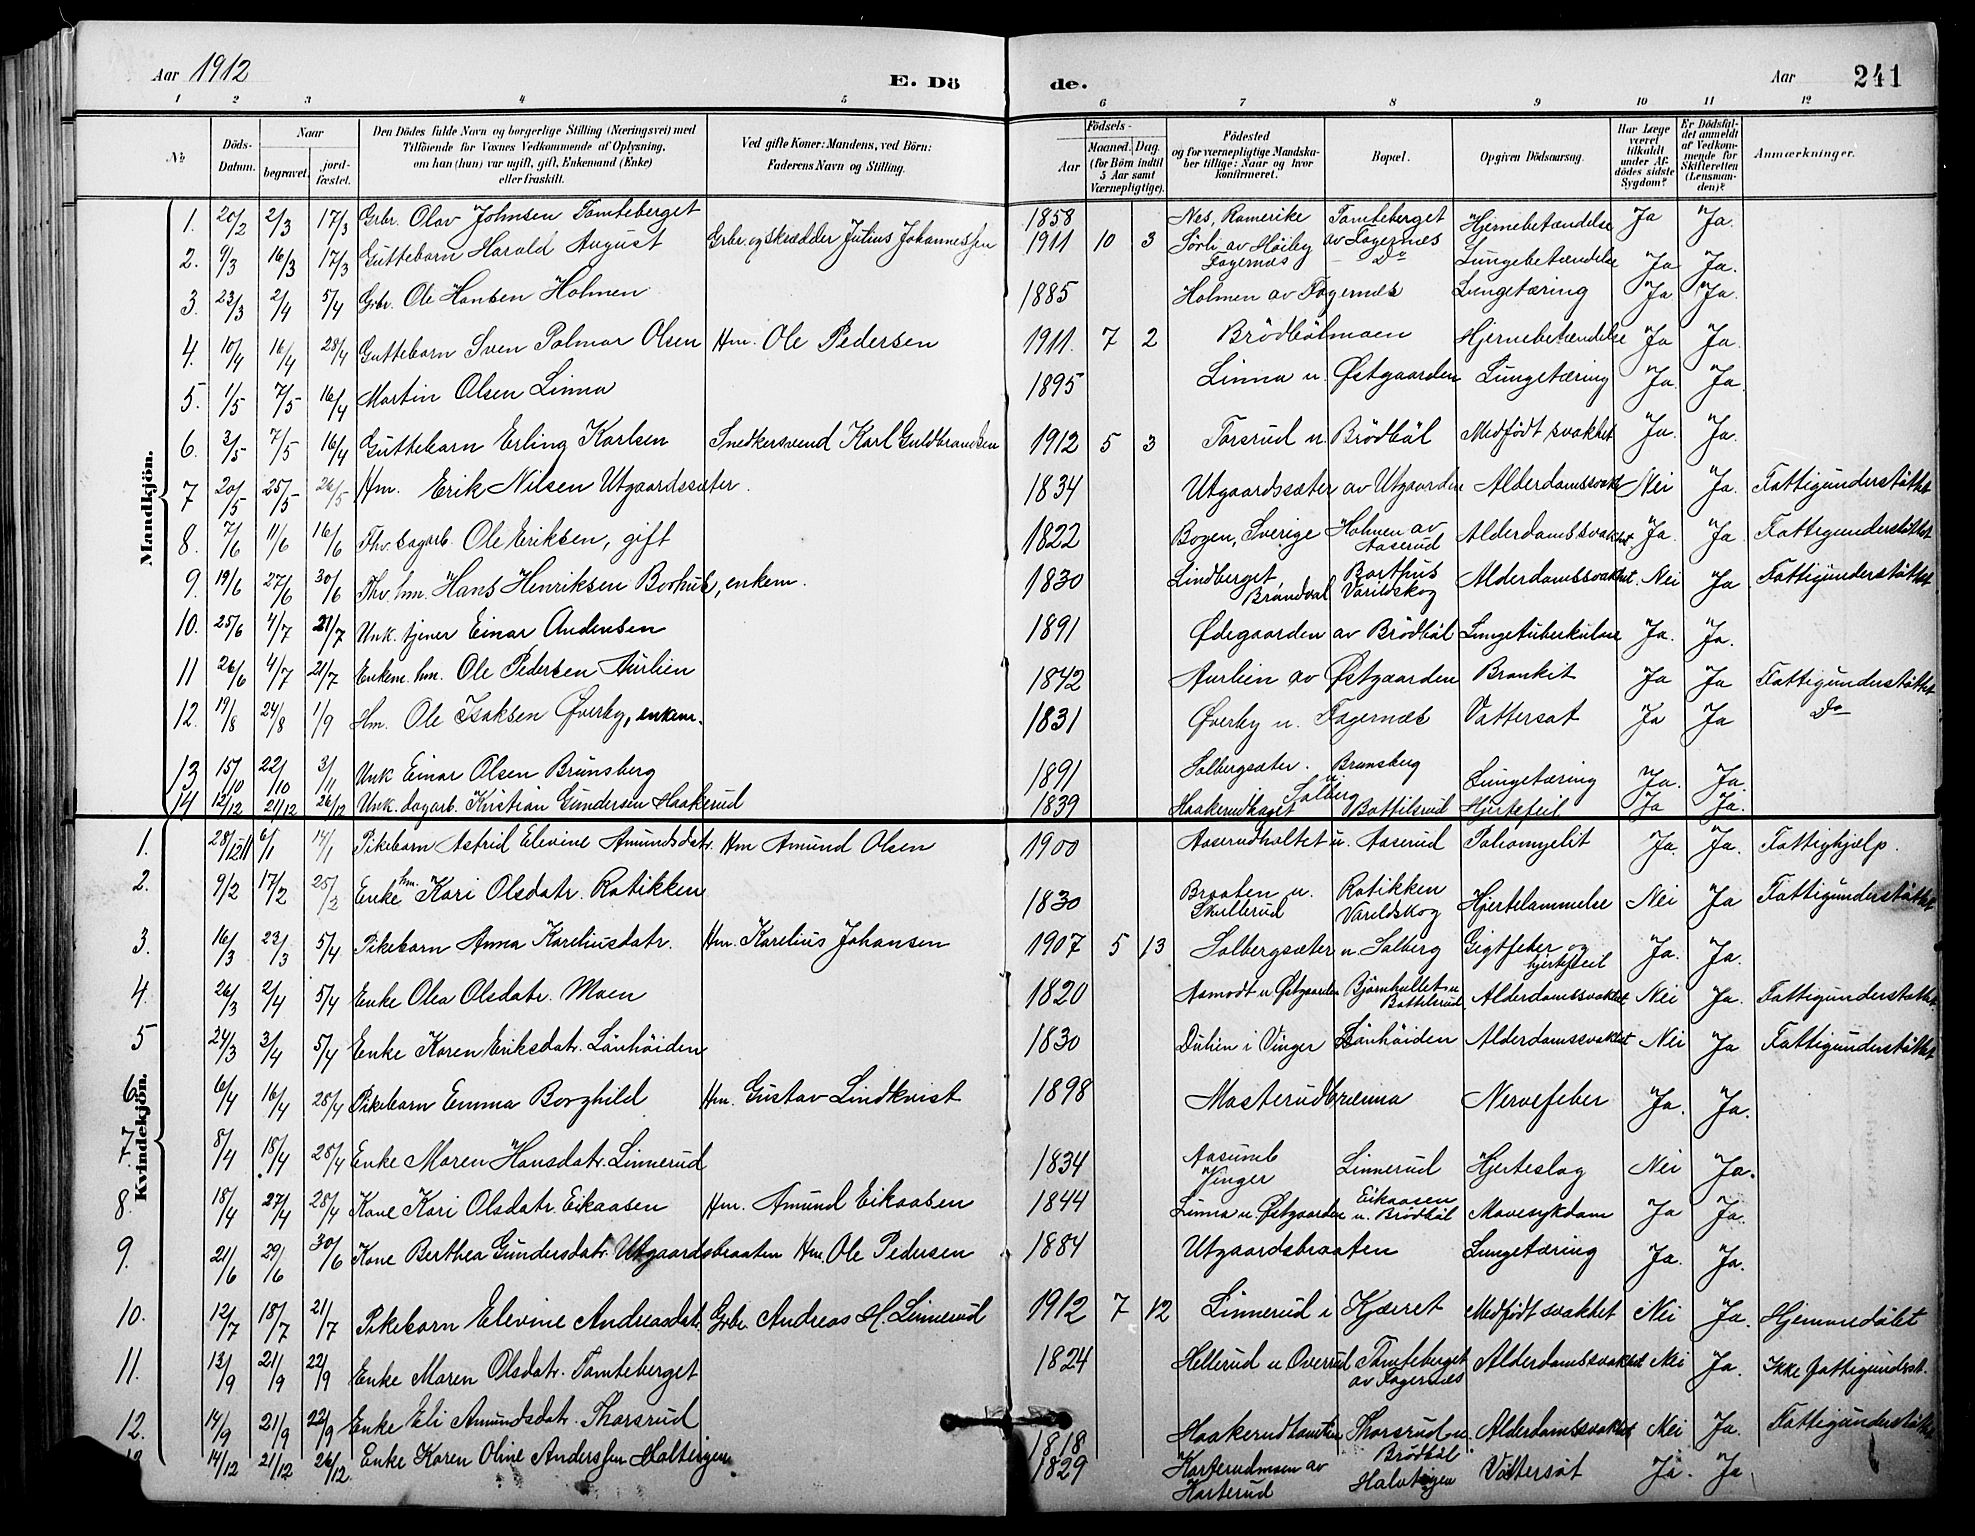 Aar 1912
E. Dö
de.
Aar 241
1 2 3 4 5 6 7 8 9 10 11 12
No. Döds-Datum. Naar begravet. jordfæstet. Den Dödes fulde Navn og borgerlige Stilling (Næringsvei) med Tilföiende for Voxnes Vedkommende af Oplysning, om han (hun) var ugift, gift, Enkemand (Enke) eller fraskilt. Ved gifte Koner: Mandens, ved Börn: Faderens Navn og Stilling. Födsels- Aar Maaned. Dag. (for Börn indtil 5 Aar samt Værnepligtige). Födested og for værnepligtige Mandskaber tillige: Naar og hvor konfirmeret. Bopæl. Opgiven Dödsaarsag. Har Læge været tilkaldt under Afdödes sidste Sygdom? Er Dödsfaldet anmeldt af Vedkommende for Skifteretten (Lensmanden)? Anmærkninger.
Mandkjön.
1. 20/2 2/3 17/3 Grbr. Olav Johnsen Tomteberget 1858 Nes, Romerike Tomteberget av Fagernes Hjernebetændelse Ja Ja.
2. 9/3 16/3 17/3 Guttebarn Harald August Grbr. og skrædder Julius Johannessen 1911 10 3 Sörli av Höiby Fagernes Do Lungebetændelse Ja Ja.
3. 23/3 2/4 5/4 Grbr. Ole Hansen Holmen 1885 Holmen av Fagernes Lungetæring Ja Ja.
4. 10/4 16/4 28/4 Guttebarn Sven Palmar Olsen Hm. Ole Pedersen 1911. 7 2 Brödbölmoen Hjernebetændelse Ja Ja.
5. 1/5 7/5 16/4 Martin Olsen Linna 1895 Linna u. Østgaarden Lungetæring Ja. Ja.
6. 3/5 7/5 16/4 Guttebarn Erling Karlsen Snedkersvend Karl Guldbrandsen 1912 5 3 Torsrud u. Brödböl Medfödt svakhet Ja. Ja.
7 20/5 25/5 26/5 Hm. Erik Nilsen Utgaardssæter. 1834 Utgaardssæter av Utgaarden Alderdomssvakh Nei Ja. Fattigunderstöttet
8. 7/6 11/6 16/6 Fhv. dagarb. Ole Eriksen, gift 1822 Bogen, Sverige Holmen av Aaserud Alderdomssvakhet Ja. Ja. Fattigunderstöttet
9. 19/6 27/6 30/6 Fhv. hm. Hans Henriksen Borhus, enkem. 1830 Lindberget, Brandval Borthus Varildskog Alderdomssvakhet. Nei Ja Fattigunderstöttet
10. 25/6 4/7 21/7 Unk. tjener Einar Andersen 1891 Ødegaarden av Brödböl Lungetuberkulose Ja. Ja.
11 26/6 4/7 21/7 Enkem. hm. Ole Pedersen Aurlien 1842 Aurlien av Østgaarden Bronkit Ja Ja Fattigunderstöttet
12. 19/8 24/8 1/9 Hm. Ole Isaksen Øverby, enkem. 1831 Øverby u. Fagernes Vattersot Ja Ja Do
13 15/10 22/10 3/11 Unk Einar Olsen Brunsberg 1891 Solbergsæter. Brunsberg u. Solberg Lungetæring Ja. Ja.
14 12/12 21/12 26/12 Unk. dagarb. Kristian Gundersen Haakerud 1839 Haakerudhaget Bottilsrud Hjertefeil Ja Ja.
Kvindekjön.
1. 28/12 11 6/1 14/1 Pikebarn Astrid Elevine Amundsdatr. Hm Amund Olsen 1900 Aaserudholtet u. Aaserud Poliomyelit Ja. Ja. Fattighjælp.
2. 9/2 17/2 25/2 Enke hm. Kari Olsdatr. Rotikken 1830 Braaten u. Skullerud Rotikken Varildskog Hjertelammelse Nei Ja Fattigunderstöttet
3. 16/3 23/3 5/4 Pikebarn Anna Kareliusdatr. Hm. Karelius Johansen 1907 5 13 Solbergsæter u. Solberg Gigtfeber og hjertefeil Ja. Ja.
4. 26/3 2/4 5/4 Enke Olea Olsdatr. Moen 1820 Aamodt u. Østgaarden Björnhullet u Bottilsrud Alderdomssvakhet Nei Ja. Fattigunderstöttet.
5 24/3 3/4 5/4 Enke Karen Eriksdatr. Lönhöiden 1830 Dulien i Vinger Lönhöiden Alderdomssvakhet Nei Ja Fattigunderstöttet
6. 6/4 16/4 28/4 Pikebarn Emma Borghild Hm. Gustav Lindkvist 1898 Masterudbrænna Nervefeber Ja. Ja.
7. 8/4 18/4 28/4 Enke Maren Hansdatr. Linnerud 1834 Aasum Vinger Linnerud Hjerteslag Nei Ja.
8. 18/4 27/4 28/4 Kone Kari Olsdatr. Eikaasen Hm. Amund Eikaasen 1844 Linna u. Østgaarden Eikaasen u. Brödböl Mavesykdom Ja Ja.
9. 21/6 29/6 30/6 Kone Berthea Gundersdatr. Utgaardsbraaten Hm. Ole Pedersen 1884 Utgaardsbraaten Lungetæring Ja. Ja.
10. 12/7 18/7 21/7 Pikebarn Elevine Andreasdat. Grbr. Andreas H. Linnerud 1912 7 12 Linnerud i Kjerret Medfödt svakhet Nei Ja. Hjemmedöbt
11. 13/9 21/9 22/9 Enke Maren Olsdatr. Tomteberget 1824 Hellerud u Overud Tomteberget av Fagernes Alderdomssvakhet Nei Ja. Ikke fattigunderst.
12. 14/9 21/9 22/9 Enke Eli Amundsdatr. Thorsrud 1818 Haakerudtomten Thorsrud u. Brödböl Alderdomssvakhet Nei Ja. Fattigunderstöttet
14/12 21/12 26/12 Enke Karen Oline Anderssen Holtingen 1829 Karterudmoen av Karterud Halvtigen Vattersot Ja. Ja